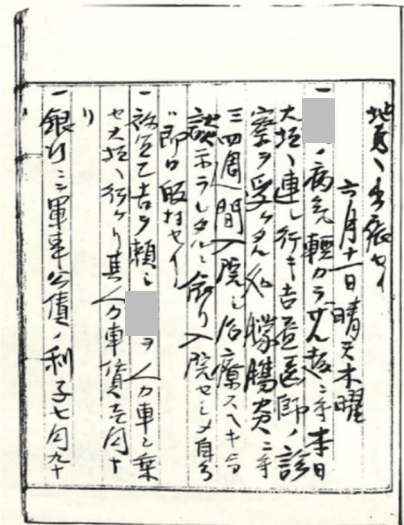 地方ヘ出張セリ
六月十一日晴天木曜
一 ノ病気軽カラサル趣ニテ本日
大垣ヘ連レ行キ吉益医師ノ診
察ヲ受ケタル処膿腸炎ニテ
三四周間入院シ治療スヘキ旨
談示ラレタルニ依リ入院セシメ自分
ハ即日取村セリ
一 弥宜乙吉ヲ頼ミ ヲ人力車ニ乗
セ大垣ヘ行ケリ其人力車賃壱円十
リ
一 銀行ニテ軍事公債ノ利子七円九十